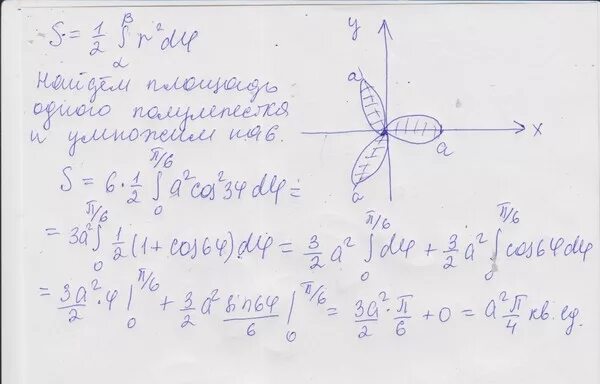 S = 1/2 ∫_α^β r² dφ
Найдём площадь
одного полулепестка
и умножим на 6.
y
a
x
a
a
S = 6·1/2 ∫_0^{π/6} a² cos² 3φ dφ =
= 3a² ∫_0^{π/6} 1/2 (1 + cos6φ) dφ = 3/2 a² ∫_0^{π/6} dφ + 3/2 a² ∫_0^{π/6} cos6φ dφ
= 3a²/2 · φ |_0^{π/6} + 3/2 a² sin6φ/6 |_0^{π/6} = 3a²/2 · π/6 + 0 = a² π/4 кв. ед.